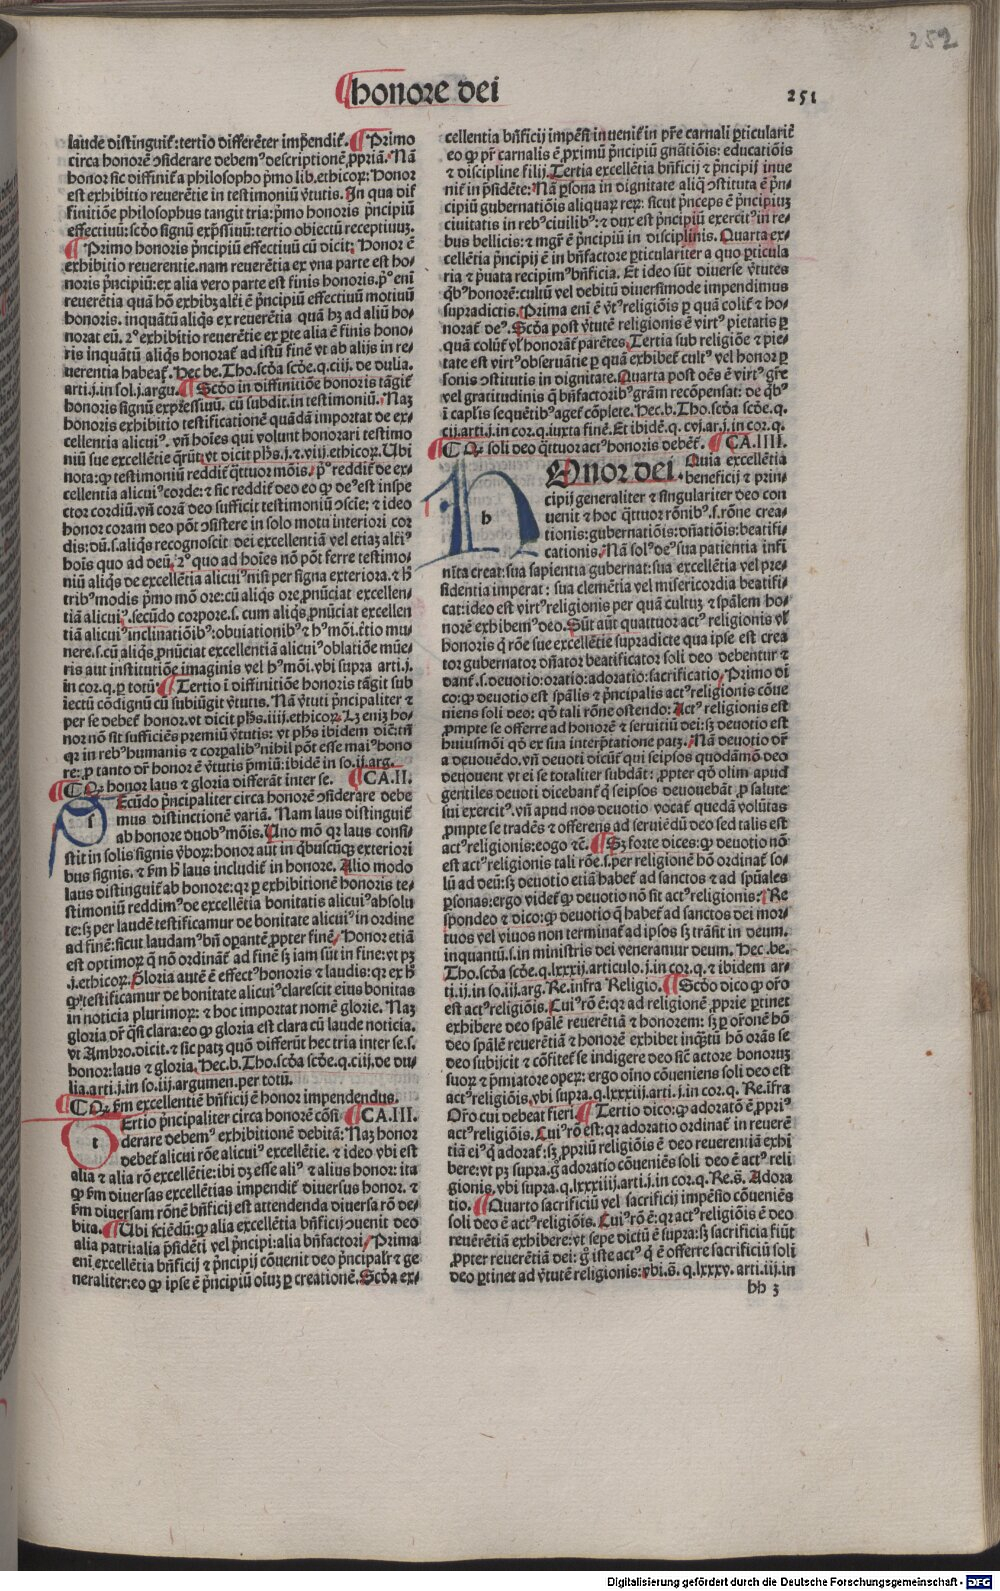 252
honore dei
251
laude distinguit̉: tertio differēter imp̄endit̉. Primo
circa honorē ꝯsiderare debemꝰ descriptionē ꝓpriā. Nā
honor sic diffinit̉ a philosopho p̄mo lib. ethicoꝝ: Honor
est exhibitio reuerētie in testimoniū v̓tutis. In qua dif
finitiōe philosophus tangit tria: p̄mo honoris p̄ncipiū
effectiuū: scd̓o signū exp̄ssiuū: tertio obiectū receptiuuꝫ.
Primo honoris p̄ncipiū effectiuū cū dicit; Honor ē
exhibitio reuerentie. nam reuerētia ex vna parte est ho-
noris p̄ncipiū: ex alia vero parte est finis honoris. p̄ꝰ eni̅
reuerētia quā hō exhibꝫ alt̓i ē p̄ncipiū effectiuū motiuū
honoris. inquātū aliq̄s ex reuerētia quā hꝫ ad aliū ho-
norat eū. 2ꝰ exhibitio reuerētie ex ꝑte alia ē finis hono-
ris inquātū aliq̄s honorat̉ ad istū finē vt ab alijs in re-
uerentia habeat̉. Hec be. Tho. scd̓a scd̓e. q. ciij. de dulia.
arti. j. in sol. j. argu. Scd̓o in diffinitiōe honoris tāgit̉
honoris signū expressiuū. cū subdit. in testimoniū. Naꝫ
honoris exhibitio testificationē quādā importat de ex-
cellentia alicuiꝰ. vn̄ hoīes qui volunt honorari testimo
niū sue excellētie q̄rūt̉ vt dicit ph̄s. j. ⁊ viij. ethicoꝝ. Ubi
nota: ꝙ testimoniū reddit̉ q̄ttuor mōis. p̄ꝰ reddit̉ de ex-
cellentia alicuiꝰ corde: ⁊ sic reddit̉ deo eo ꝙ deꝰ est inspe
ctor cordiū. vn̄ corā deo sufficit testimoniū ꝯscīe: ⁊ ideo
honor coram deo pōt ꝯsistere in solo motu interiori cor
dis: dū. s. aliq̄s recognoscit dei excellentiā vel etiaꝫ alt̓iꝰ
hoīs quo ad deū. 2ꝰ quo ad hoīes nō pōt ferre testimo-
niū aliq̄s de excellētia alicuiꝰ nisi per signa exteriora. ⁊ h̄
tribꝰ modis p̄mo mō ore: cū aliq̄s ore ꝓnūciat excellen-
tiā alicuiꝰ. secūdo corpore. s. cum aliq̄s ꝓnūciat excellen
tiā alicuiꝰ inclinatiōibꝰ: obuiationibꝰ ⁊ hꝰ mōi. t̓tio mu-
nere. s. cū aliq̄s ꝓnūciat excellentiā alicuiꝰ oblatiōe mūe-
ris aut institutiōe imaginis vel hꝰ mōi. vbi supra arti. j.
in cor. q. ꝑ totū. Tertio ī diffinitiōe honoris tāgit sub
iectū cōdignū cū subiūgit v̓tutis. Nā v̓tuti p̄ncipaliter ⁊
per se debet̉ honor. vt dicit ph̄s. iiij. ethicoꝝ. Lꝫ eniꝫ ho-
nor nō sit sufficiēs premiū v̓tutis: vt ph̄s ibidem dic̄: tn̄
qꝛ in rebꝰ humanis ⁊ corꝑalibꝰ nihil pōt esse maiꝰ hono
re: ꝓ tanto dr̄ honor ē v̓tutis p̄miū: ibidē in so. ij. arg.
Qꝛ honor laus ⁊ gloria differāt inter se. CA. II.
s
Ecūdo p̄ncipaliter circa honorē ꝯsiderare debe
mus distinctionē variā. Nam laus distinguit̉
ab honore duobꝰ mōis. Uno mō qꝛ laus consi-
stit in solis signis v̓boꝝ: honor aūt in q̄buscūqꝫ exteriori
bus signis. ⁊ ẜm h̄ laus includit̉ in honore. Alio modo
laus distinguit̉ ab honore: qꝛ ꝑ exhibitionē honoris te-
stimoniū reddimꝰ de excellētia bonitatis alicuiꝰ absolu
te: sꝫ per laudē testificamur de bonitate alicuiꝰ in ordine
ad finē: sicut laudamꝰ bn̄ oꝑantē ꝓpter finē. Honor etiā
est optimoꝝ q̄ nō ordinat̉ ad finē sꝫ iam sūt in fine: vt pꝫ
.j. ethicoꝝ. Gloria autē ē effectꝰ honoris ⁊ laudis: qꝛ ex h̄
ꝙ testificamur de bonitate alicuiꝰ clarescit eius bonitas
in noticia plurimoꝝ: ⁊ hoc importat nomē glorie. Naꝫ
gloria dr̄ q̄si clara: eo ꝙ gloria est clara cū laude noticia.
vt Ambro. dicit. ⁊ sic patꝫ quō differūt hec tria inter se. s.
honor: laus ⁊ gloria. Hec. b. Tho. scd̓a scd̓e. q. ciij. de du-
lia. arti. j. in so. iij. argumen. per totū.
Qꝛ ẜm excellentiē bn̄ficij ē honor impendendus.
t
Ertio p̄ncipaliter circa honorē cōsi- CA. III.
derare debemꝰ exhibitionē debitā: Naꝫ honor
debet̉ alicui rōe alicuiꝰ excellētie. ⁊ ideo vbi est
alia ⁊ alia rō excellētie: ibi dꝫ esse aliꝰ ⁊ alius honor: ita
ꝙ ẜm diuersas excellētias impendit̉ diuersus honor. ⁊
ẜm diuersam rōnē bn̄ficij est attendenda diuersa rō de-
bita. Ubi sciēdū: ꝙ alia excellētia bn̄ficij ꝯuenit deo
alia patri: alia p̄sidēti vel p̄ncipi: alia bn̄factori. Prima
eni̅ excellētia bn̄ficij ⁊ p̄ncipij cōuenit deo p̄ncipalr̄ ⁊ ge
neraliter: eo ꝙ ipse ē p̄ncipiū oīuꝫ ꝑ creationē. Scd̓a ex-
cellentia bn̄ficij impēsi inuenit̉ in pr̄e carnali ꝑticulariē
eo ꝙ pr̄ carnalis ē ꝓximū p̄ncipiū gn̄atiōis: educatiōis
⁊ discipline filij. Tertia excellētia bn̄ficij ⁊ p̄ncipij inue
nit̉ in p̄sidēte: Nā ꝑsona in dignitate aliq̄ ꝯstituta ē p̄n-
cipiū gubernatiōis aliquaꝝ reꝝ: sicut p̄nceps ē p̄ncipiuꝫ
ciuitatis in rebꝰ ciuilibꝰ: ⁊ dux est p̄ncipiū exercitꝰ in re-
bus bellicis: ⁊ mgr̄ ē p̄ncipiū in disciplinis. Quarta ex-
cellētia p̄ncipij ē in bn̄factore ꝑticulariter a quo ꝑticula
ria ⁊ p̄uata recipimꝰ bn̄ficia. Et ideo sūt diuerse v̓tutes
q̄bꝰ honorē: cultū vel debitū diuersimode impendimus
supradictis. Prima eni̅ ē v̓tꝰ religiōis ꝑ quā colit̉ ⁊ ho-
norat̉ deꝰ. Scd̓a post v̓tutē religionis ē virtꝰ pietatis ꝑ
quā colūt̉ vl̓ honorāt̉ parētes. Tertia sub religiōe ⁊ pie-
tate est virtꝰ obseruātie ꝑ quā exhibet̉ cultꝰ vel honor ꝑ
sonis ꝯstitutis in dignitate. Quarta post oēs ē virtꝰ gr̄e
vel gratitudinis q̄ bn̄factoribꝰ grām recōpensat: de q̄bꝰ
ī caplis sequētibꝰ aget̉ cōplete. Hec. b. Tho. scd̓a scd̓e. q.
cij. arti. j. in cor. q. iuxta finē. Et ibidē. q. cvj. ar. j. in cor. q.
Qꝛ soli deo q̄ttuor actꝰ honoris debēt̉. CA. IIII.
h
Onor dei. Quia excellētia
beneficij ⁊ prin-
cipij generaliter ⁊ singulariter deo con
uenit ⁊ hoc q̄ttuor rōnibꝰ. s. rōne crea-
tionis: gubernatiōis: dn̄atiōis: beatifi-
cationis. Nā solꝰ deꝰ sua patientia infi
nīta creat: sua sapientia gubernat: sua excellētia vel pre-
sidentia imperat: sua clemētia vel misericordia beatifi-
cat: ideo est virtꝰ religionis per quā cultuꝫ ⁊ spālem ho-
norē exhibemꝰ deo. Sūt aūt quattuor actꝰ religionis vl̓
honoris q̄ rōe sue excellētie supradicte qua ipse est crea
tor gubernator dn̄ator beatificator soli deo debentur ⁊
dant̉. s. deuotio: oratio: adoratio: sacrificatio. Primo di̅
co: ꝙ deuotio est spālis ⁊ p̄ncipalis actꝰ religionis cōue
niens soli deo: qd̓ tali rōne ostendo: Actꝰ religionis est
ꝓmpte se offerre ad honorē ⁊ seruitiū dei: sꝫ deuotio est
huiusmōi qd̓ ex sua interp̄tatione patꝫ. Nā deuotio dr̄
a deuouēdo. vn̄ deuoti dicūt̉ qui seipsos quodāmō deo
deuouent vt ei se totaliter subdāt: ꝓpter qd̓ olim apud
gentiles deuoti dicebant̉ q̄ seipsos deuouebāt ꝓ salute
sui exercitꝰ. vn̄ apud nos deuotio vocat̉ quedā volūtas
ꝓmpte se tradēs ⁊ offerens ad seruiēdū deo sed talis est
actꝰ religionis: eogo ⁊c̄. Sꝫ forte dices: ꝙ deuotio nō
est actꝰ religionis tali rōe. s. per religionē hō ordinat̉ so-
lū ad deū: sꝫ deuotio etiā habet̉ ad sanctos ⁊ ad spūales
ꝑsonas: ergo videt̉ ꝙ deuotio nō sit actꝰ religionis: Re
spondeo ⁊ dico: ꝙ deuotio q̄ habet̉ ad sanctos dei mor-
tuos vel viuos non terminat̉ ad ipsos sꝫ trāsit in deum.
inquantū. s. in ministris dei veneramur deum. Hec. be.
Tho. scd̓a scd̓e. q. lxxxij. articulo. j. in cor. q. ⁊ ibidem ar-
ti. ij. in so. iij. arg. Re. infra Religio. Scd̓o dico ꝙ or̄o
est actꝰ religiōis. Cuiꝰ rō ē: qꝛ ad religionē ꝓprie ꝑtinet
exhibere deo spālē reuerētiā ⁊ honorem: sꝫ ꝑ or̄onē hō
deo spālē reuerētiā ⁊ honorē exhibet inq̄ꝫtū hō orās se
deo subijcit ⁊ cōfitet̉ se indigere deo sic̄ actore bonoruꝫ
suoꝝ ⁊ p̄miatore operꝝ: ergo oīno cōueniens soli deo est
actꝰ religiōis. vbi supra. q. lxxxiij. arti. j. in cor. q. Re. īfra
Or̄o cui debeat fieri. Tertio dico: ꝙ adoratō ē ꝓpriꝰ
actꝰ religiōis. Cuiꝰ rō est: qꝛ adoratio ordinat̉ in reuerē
tiā eiꝰ q̄ adorat̉: sꝫ ꝓpriū religiōis ē deo reuerentiā exhi
bere: vt pꝫ supra. g̊ adoratio cōueniēs soli deo ē actꝰ reli
gionis. vbi supra. q. lxxxiiij. arti. j. in cor. q. Re. s̄. Adora
tio. Quarto sacrificiū vel sacrificij impēsio cōueniēs
soli deo ē actꝰ religiōis. Cuiꝰ rō ē: qꝛ actꝰ religiōis ē deo
reuerētiā exhibere: vt sepe dictū ē supra: sꝫ sacrificia fiūt
ꝓpter reuerētiā dei: g̊ iste actꝰ q̄ ē offerre sacrificiū soli
deo ꝑtinet ad v̓tutē religionis: vbi. s̄. q. lxxxv. arti. iij. in
hh 3
Digitalisierung gefördert durch die Deutsche Forschungsgemeinschaft - DFG